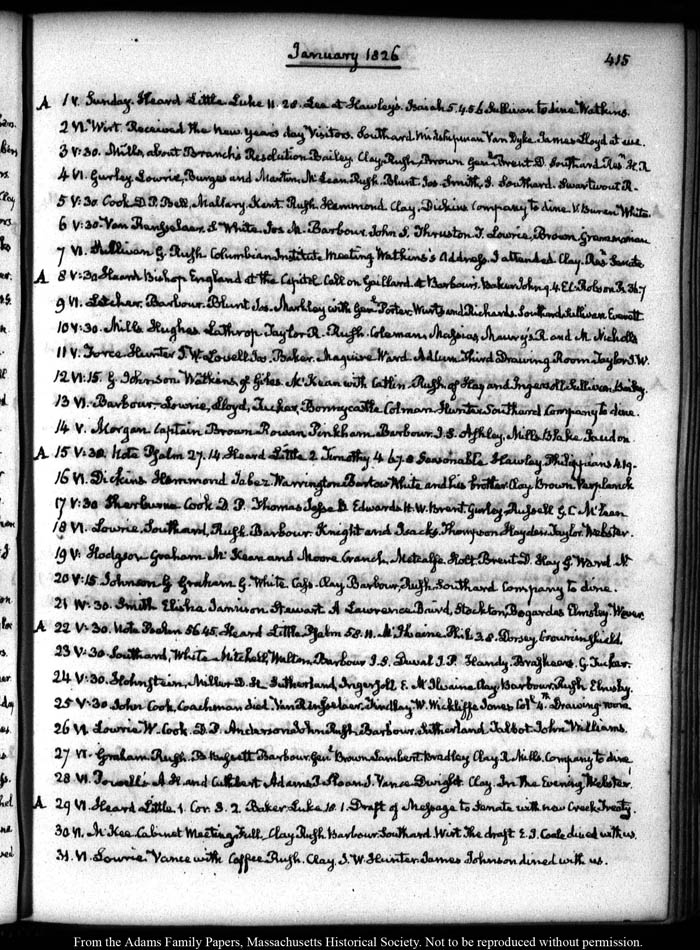 January 1826
415
A 1 V. Sunday. Heard Little Luke 11. 28. Lee at Hawley's. Isaiah 5.4.5.6 Sullivan to dine Watkins.
2 VI. Wirt. Received the New years day Visitors. Southard Midshipman Van Dyke James Lloyd at eve.
3 V:30. Mills, about Branch's Resolution Bailey. Clay Rush, Brown Genl Brent D. Southard H.R
4 VI. Gurley Lowrie, Burges and Martin, McLean Rush. Blunt Jos. Smith, S. Southard. Swartwout R.
5 V:30 Cook D.P. Bell, Mallary, Kent Rush Hammond. Clay, Dickins Company to dine. V. Buren White.
6 V:30 Van Rensselaer. S. White. Jos. M. Barbour John S. Thruston T. Lowrie, Brown
7 VI. Sullivan G. Rush Columbian Institute Meeting Watkins's Address I attended. Clay. Senate
A 8 V:30 Heard Bishop England at the Capitol Call on Gaillard & Barbour. Baker John 9.4.
9 VI. Letcher. Barbour. Blunt Jos. Markley with Genl Porter, Wurts and Richards. Southard Sullivan Everett
10 V:30. Mills Hughes Lathrop Taylor R. Rush. Coleman Massias Maury's R and M. Nicholls
11 V. Force Hunter J.W. Lowell Jos. Baker. Maguire Ward Adlum Third Drawing Room Taylor J.W.
12 VI:15. G. Johnson Watkins of Giles McKean with Catlin. Rush of Hay and Ingersoll Sullivan Bailey.
13 VI. Barbour, Lowrie, Lloyd, Tucker, Bonnycastle Colman Hunter Southard Company to dine.
14 V. Morgan Captain Brown Rowan Pinkham. Barbour J.S. Ashley, Mills Blake
A 15 V:30. Note Psalm 27.14 Heard Little 2 Timothy 4 6.7.8 Seasonable Hawley Philippians 4.19.
16 VI. Dickins Hammond Jabez Warrington Bartow White and his brother Clay Brown Verplanck
17 V:30 Sherburne Cook D. P. Thomas Jesse B. Edwards H.W. Brent Gurley Russell G.C. McLean
18 VI. Lowrie. Southard, Rush Barbour. Knight and Isacks Thompson Hayden Taylor Webster.
19 V: Hodgson Graham McKean and Moore Cranch, Metcalfe Holt. Brent D. Hay G. Ward
20 V:15 Johnson G Graham G. White. Cass. Clay Barbour, Rush Southard Company to dine.
21 IV:30. Smith Elisha Jamison Stewart A Lawrence Baird, Stockton, Bogardus Elmsley. Weaver.
A 22 V:30. Note Psalm 56 45. Heard Little Psalm 58.11. McIlvaine Phil: 3.8. Dorsey, Crowninshield
23 V:30 Southard, White Mitchell, Walton, Barbour J.S. Duval I.P. Handy, Brashears. G. Tucker.
24 V:30. Holmstein, Miller D.H. Sutherland, Ingersoll E. McIlvaine, Clay, Barbour, Rush Elmsley.
25 V:30 John Cook, Coachman died. Van Rensselaer. Findlay W. Wickliffe Jones Col. 4th Drawing room
26 VI. Lowrie W. Cook. D.P. Anderson John Rush, Barbour. Sutherland Talbot John Williams.
27 VI. Graham. Rush. B Ruggles Barbour Genl Brown Lambert Bradley Clay R Mills. Company to dine
28 VI. Powell's A.H. and Cuthbert Adams J. Sloan J. Vance Dwight Clay. In the Evening Webster
A 29 VI Heard Little. 1. Cor: 3. 2. Baker. Luke 18. 1. Draft of Message to Senate with new Creek Treaty.
30 VI. McKee Cabinet Meeting. Full, Clay Rush Barbour Southard Wirt The draft E.J. Coale dined with us.
31. VI. Lowrie. Vance with Coffee. Rush. Clay. J.W. Hunter. James Johnson dined with us.
From the Adams Family Papers, Massachusetts Historical Society. Not to be reproduced without permission.